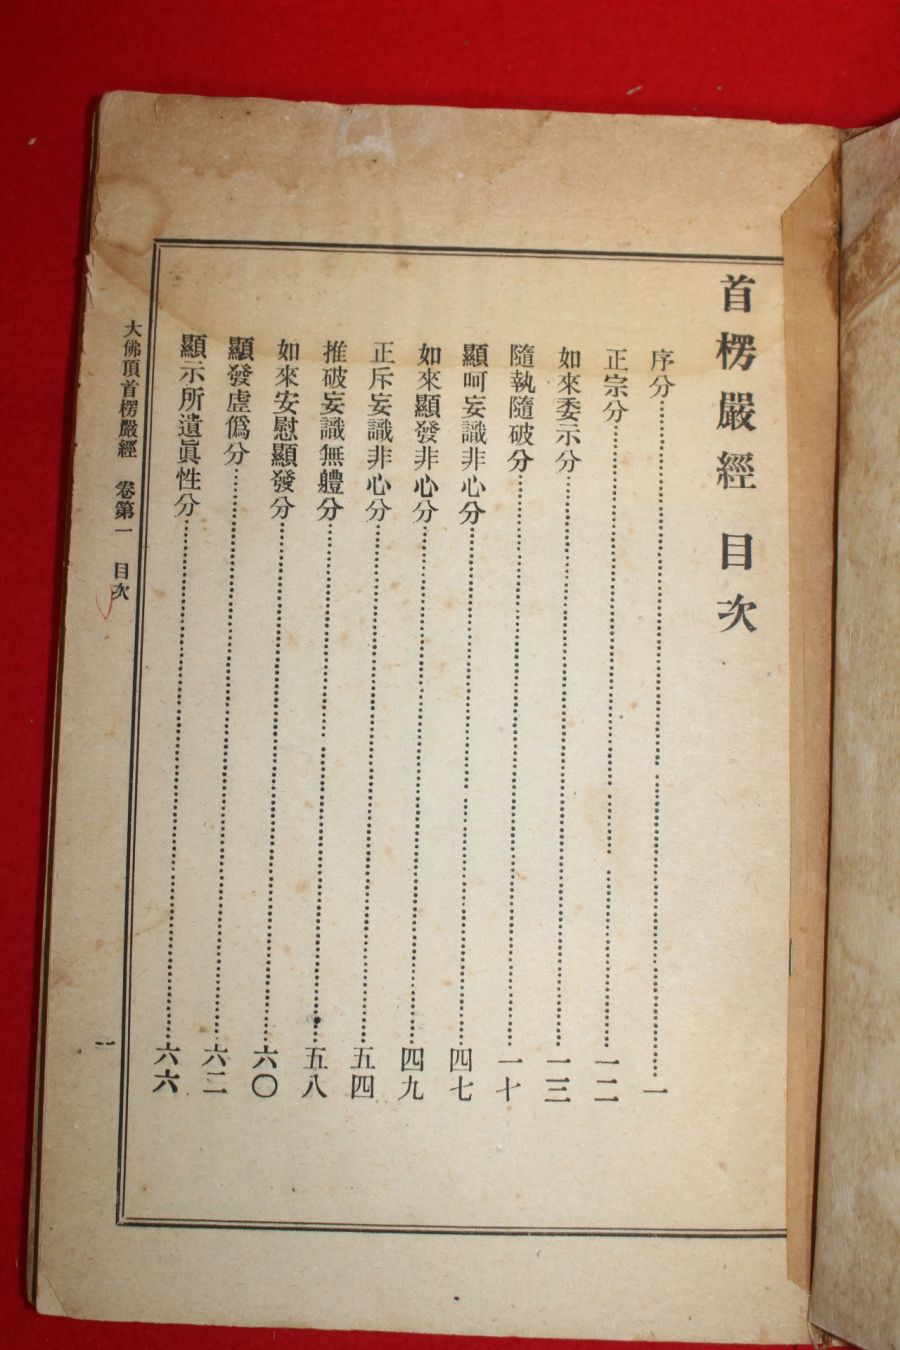 首楞嚴經 目次
序分⋯⋯一
正宗分⋯⋯一二
如來委示分⋯⋯一三
隨執隨破分⋯⋯一十
顯呵妄識非心分⋯⋯四七
如來顯發非心分⋯⋯四九
正斥妄識非心分⋯⋯五四
推破妄識無軆分⋯⋯五八
如來安慰顯發分⋯⋯六〇
顯發虛僞分⋯⋯六二
顯示所遺眞性分⋯⋯六六
大佛頂首楞嚴經 卷第一 目次 一